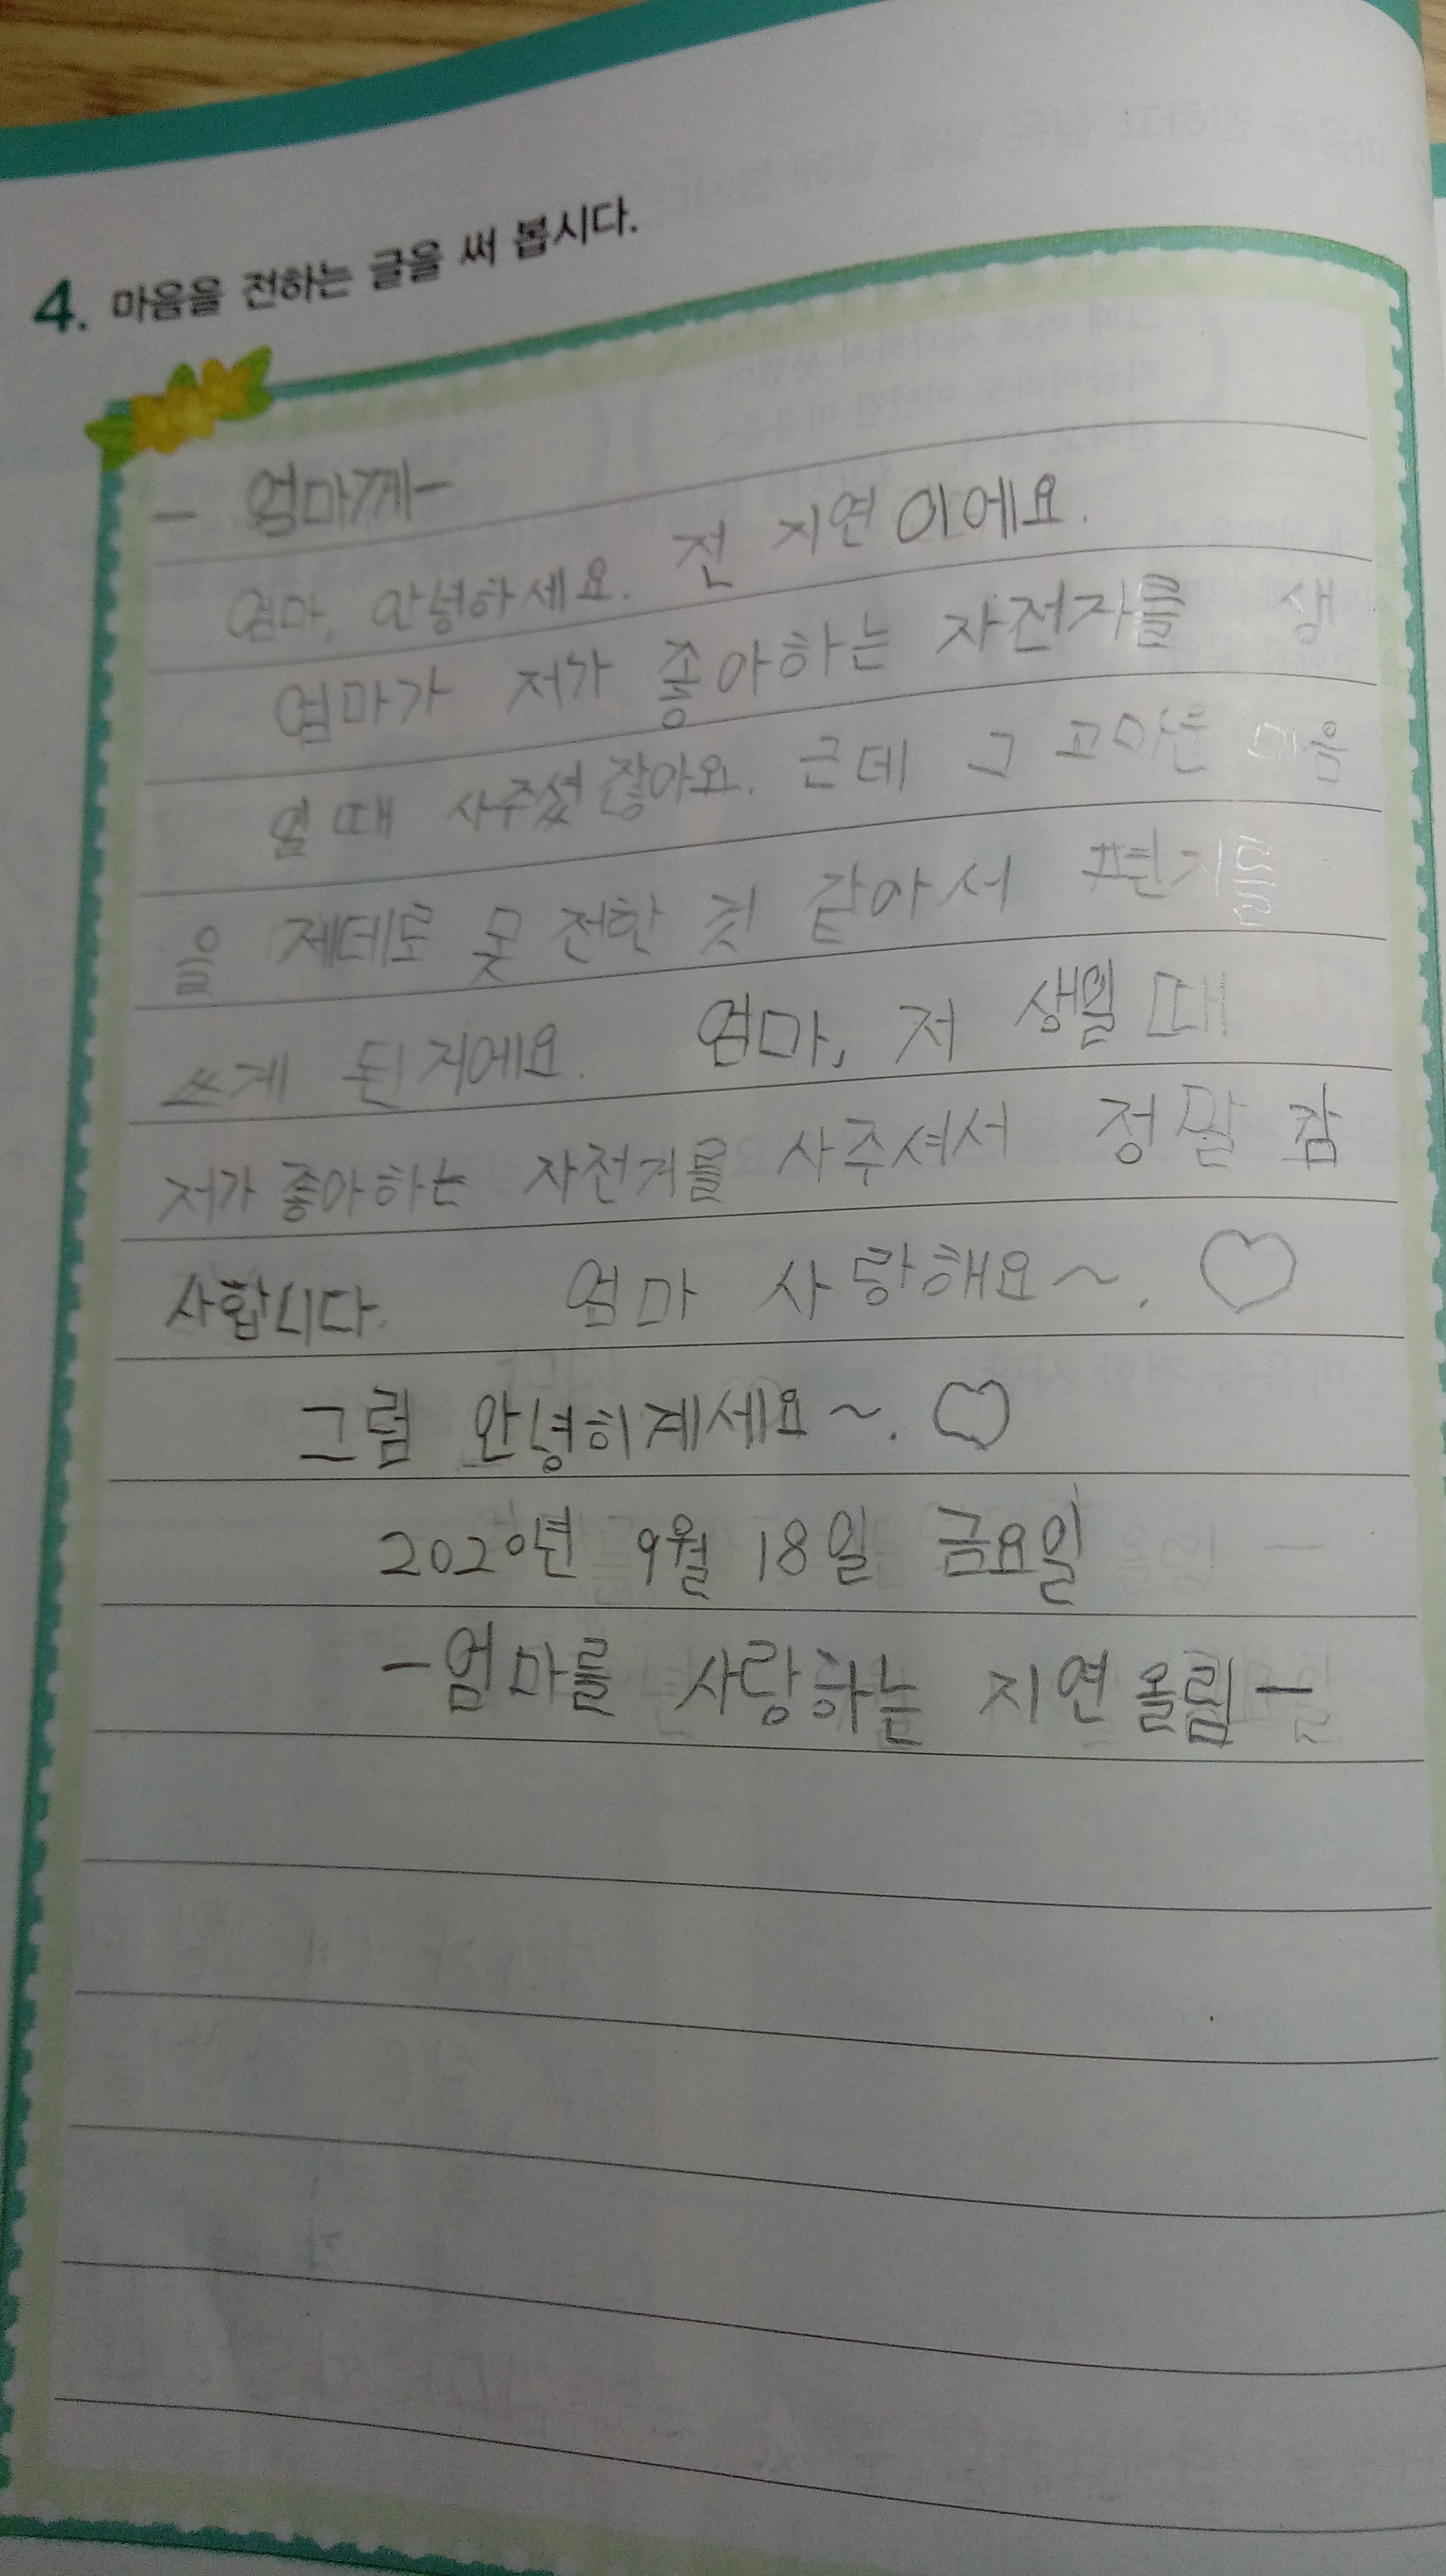 4. 마음을 전하는 글을 써 봅시다.
- 엄마께-
엄마, 안녕하세요. 전 지연이에요.
엄마가 저가 좋아하는 자전자를 생
일 때 사주셨잖아요. 근데 그 고마운 마음
을 제데로 못 전한 것 같아서 편지를
쓰게 된거에요. 엄마, 저 생일 때
저가 좋아하는 자전거를 사주셔서 정말 감
사합니다. 엄마 사랑해요~. ♡
그럼 안녕히계세요~. ♡
2020년 9월 18일 금요일
-엄마를 사랑하는 지연올림-